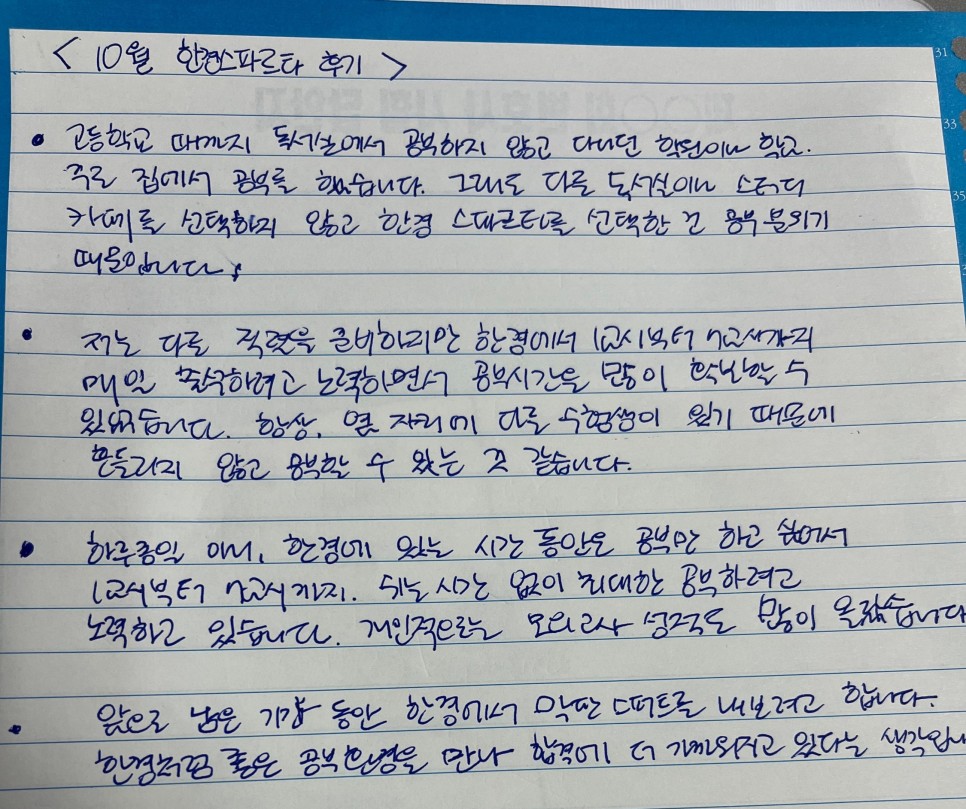 < 10월 한경스파르타 후기 >
• 고등학교 때까지 독서실에서 공부하지 않고 다니던 학원이나 학교.
주로 집에서 공부를 했습니다. 그래도 다른 독서실이나 스터디
카페를 선택하지 않고 한경 스파르타를 선택한 건 공부 분위기
때문입니다.
• 저는 다른 직렬을 준비하지만 한경에서 1교시부터 7교시까지
매일 출석하려고 노력하면서 공부시간을 많이 확보할 수
있었습니다. 항상, 옆 자리에 다른 수험생이 있기 때문에
흔들리지 않고 공부할 수 있는 것 같습니다.
• 하루종일 아니, 한경에 있는 시간 동안은 공부만 하고 싶어서
1교시부터 7교시까지. 쉬는 시간 없이 최대한 공부하려고
노력하고 있습니다. 개인적으로는 모의고사 성적도 많이 올랐습니다
• 앞으로 남은 기간 동안 한경에서 막판 스퍼트를 내보려고 합니다.
한경처럼 좋은 공부환경을 만나 합격에 더 가까워지고 있다는 생각입니
31
33
35